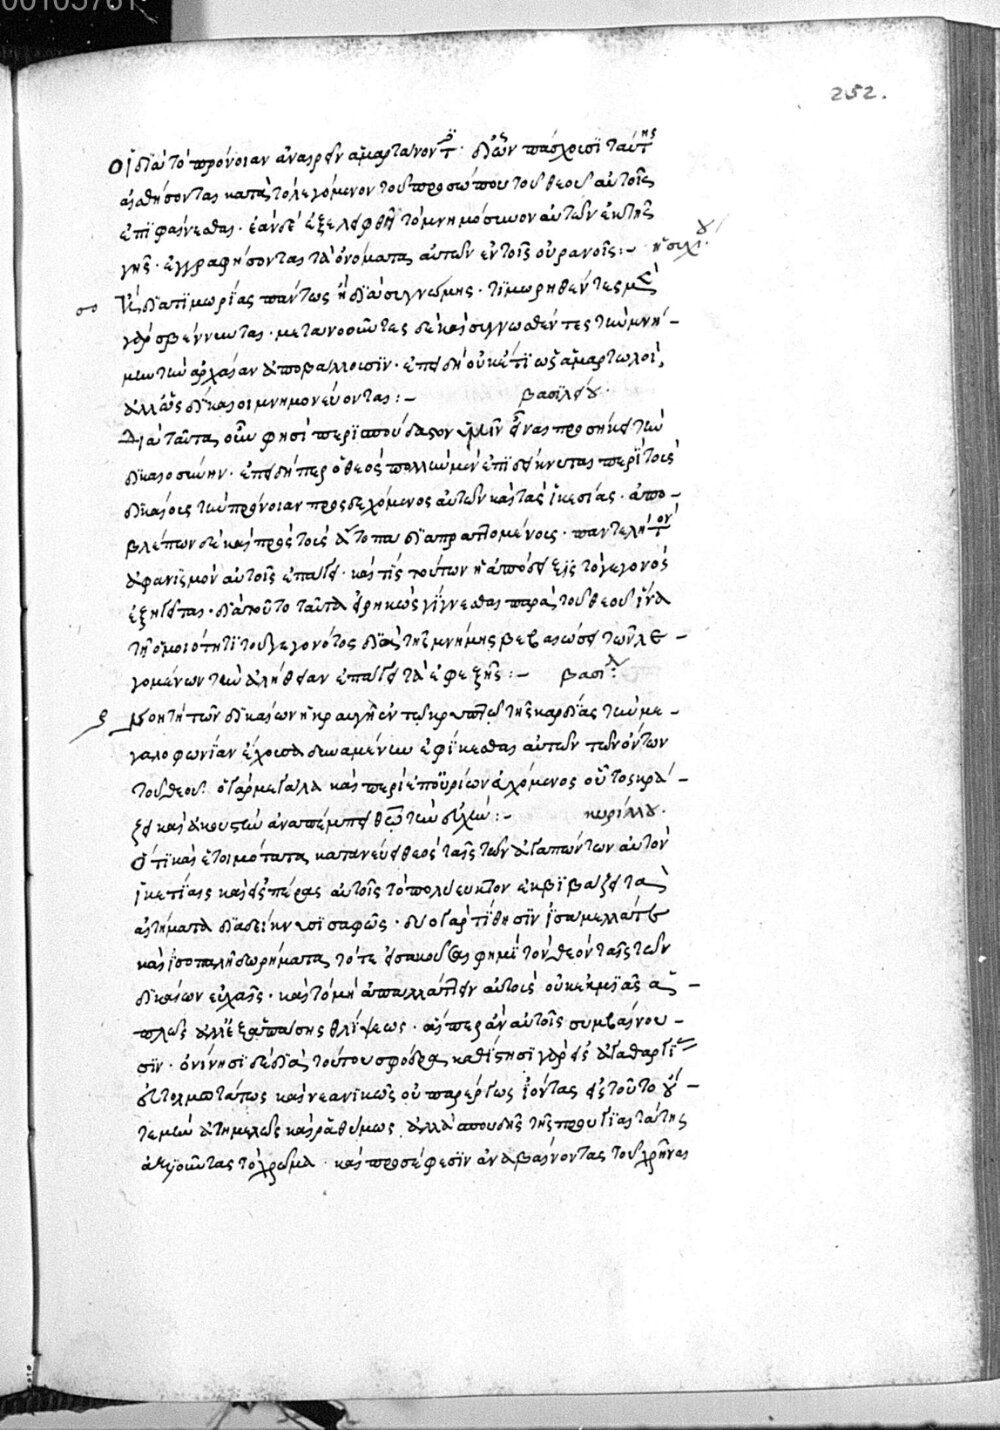 00105781
252.
οἱ διὰ τὸ πρόνοιαν ἀναιρεῖν ἁμαρτάνοντες· δι' ὧν πάσχουσι ταύτης
αἰσθήσονται κατὰ τὸ λεγόμενον τοῦ προσώπου τοῦ θεοῦ αὐτοῖς
ἐπιφαίνεσθαι· ἐὰν δὲ ἐξαλειφθῇ τὸ μνημόσυνον αὐτῶν ἐκ τῆς
γῆς· ἐγγραφήσονται τὰ ὀνόματα αὐτῶν ἐν τοῖς οὐρανοῖς:– ἡσυχίου·
διὰ τιμωρίας πάντως ἢ διὰ συγνώμης· τιμωρηθέντες μὲν
γὰρ σβέννυνται· μετανοοῦντες δὲ καὶ συγνωσθέντες τὴν μνή–
μην τὴν ἀρχαίαν ἀποβάλλουσιν· ἐπειδὴ οὐκέτι ὡς ἁμαρτωλοὶ,
ἀλλ' ὡς δίκαιοι μνημονεύονται:– βασιλείου·
Διὰ ταῦτα οὖν φησὶ περισπούδαστον ἡμῖν εἶναι προσήκει τὴν
δικαιοσύνην· ἐπειδήπερ ὁ θεὸς πολλὴν μὲν ἐπιδείκνυται περὶ τοὺς
δικαίους τὴν πρόνοιαν προσδεχόμενος αὐτῶν καὶ τὰς ἱκεσίας· ἀπο–
βλέπων δὲ καὶ πρὸς τοὺς ἄτοπα διαπραττομένους· παντελῆ τὸν
ἀφανισμὸν αὐτοῖς ἐπάγει· καὶ τίς τούτων ἡ ἀπόδειξις τὸ γεγονὸς
ἐξηγεῖται· διὰ τοῦτο ταῦτα εἰρηκὼς γίγνεσθαι παρὰ τοῦ θεοῦ ἵνα
τῇ ὁμοιότητι τοῦ γεγονότος διὰ τῆς μνήμης βεβαιώσει τῶν λε–
γομένων τὴν ἀλήθειαν ἐπάγει τὰ ἐφεξῆς:– βασιλ
νοητὴ τῶν δικαίων ἡ κραυγὴ ἐν τῷ κρυπτῷ τῆς καρδίας τὴν με–
γαλοφωνίαν ἔχουσα δυναμένην ἐφικέσθαι αὐτῶν τῶν ὤτων
τοῦ θεοῦ· ὁ γὰρ μεγάλα καὶ περὶ ἐπουρανίων εὐχόμενος οὗτος κρά–
ζει καὶ ἀκουστὴν ἀναπέμπει θεῷ τὴν εὐχήν:– κυρίλλου·
Ὅτι καὶ ἑτοιμότατα κατανεύει θεὸς ταῖς τῶν ἀγαπώντων αὐτὸν
ἱκετίαις καὶ εἰς πέρας αὐτοῖς τὸ πολύευκτον ἐκβιβάζει τὰ
αἰτήματα διαδείκνυσι σαφῶς· δύο γὰρ τίθησιν
καὶ ἰσοπαλῆ δωρήματα τό τε εἰσακοῦσαι φημὶ τὸν θεὸν ταῖς τῶν
δικαίων εὐχαῖς· καὶ τὸ μὴ ἀπαλλάττειν αὐτοὺς οὐκ ἐκ μιᾶς ἁ–
πλῶς ἀλλ' ἐξ ἁπάσης θλίψεως· αἵπερ ἂν αὐτοῖς συμβαίνου–
σιν· ὀνίνησι δὲ διὰ τούτου σφόδρα καθίστησι γὰρ εἰς
εὐτολμοτάτως καὶ νεανικῶς οὐ παρέργως ἰόντας εἰς τοῦτο οὔ–
τε μὴν ἀτημελῶς καὶ ῥαθύμως, ἀλλὰ σπουδῆς τῆς προυργιαιτάτης
ἀξιοῦντας τὸ χρῆμα· καὶ προσέφεσιν ἀναβαίνοντας τοῦ χρῆναι